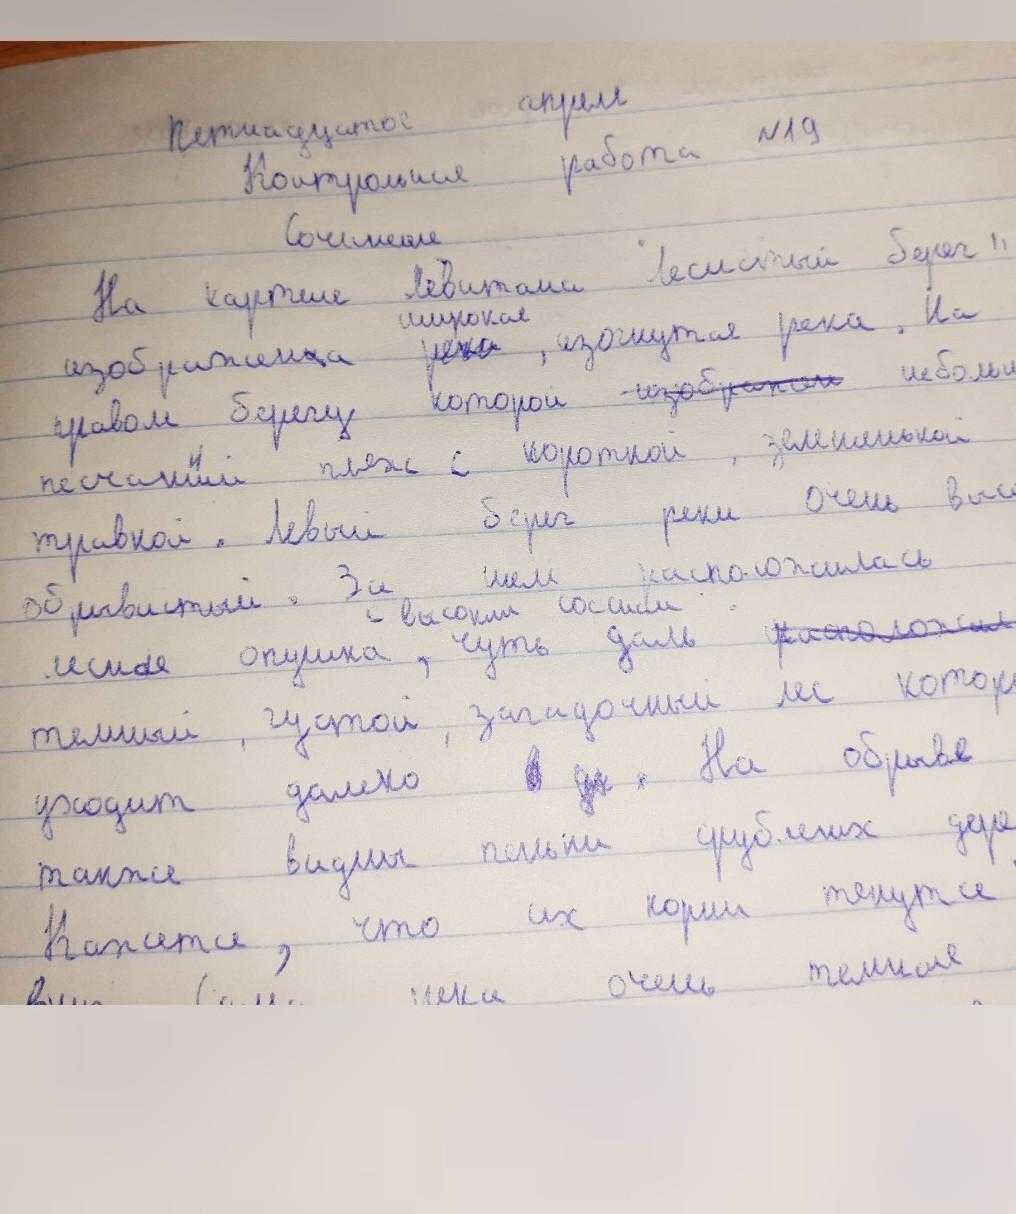 Петнадцатое апреля
Контрольная работа №19
Сочинение
На картине Левитана "Лесистый берег"
широкая
изображена река, изогнутая река. На
правом берегу которой изображен небольш
песчаный пляж с короткой, зелененькой
травкой. Левый берег реки очень высо
обрывистый. За ним расположилась
с высокими соснами
лесная опушка, чуть даль расположил
темный, густой, загадочный лес котор
уходит далеко. На обрыве
также видны пеньки срубленых дере
Кажется, что их корни тянутся
вниз Сама река очень темная